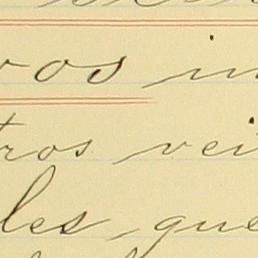 vos in
tros vei
les, que